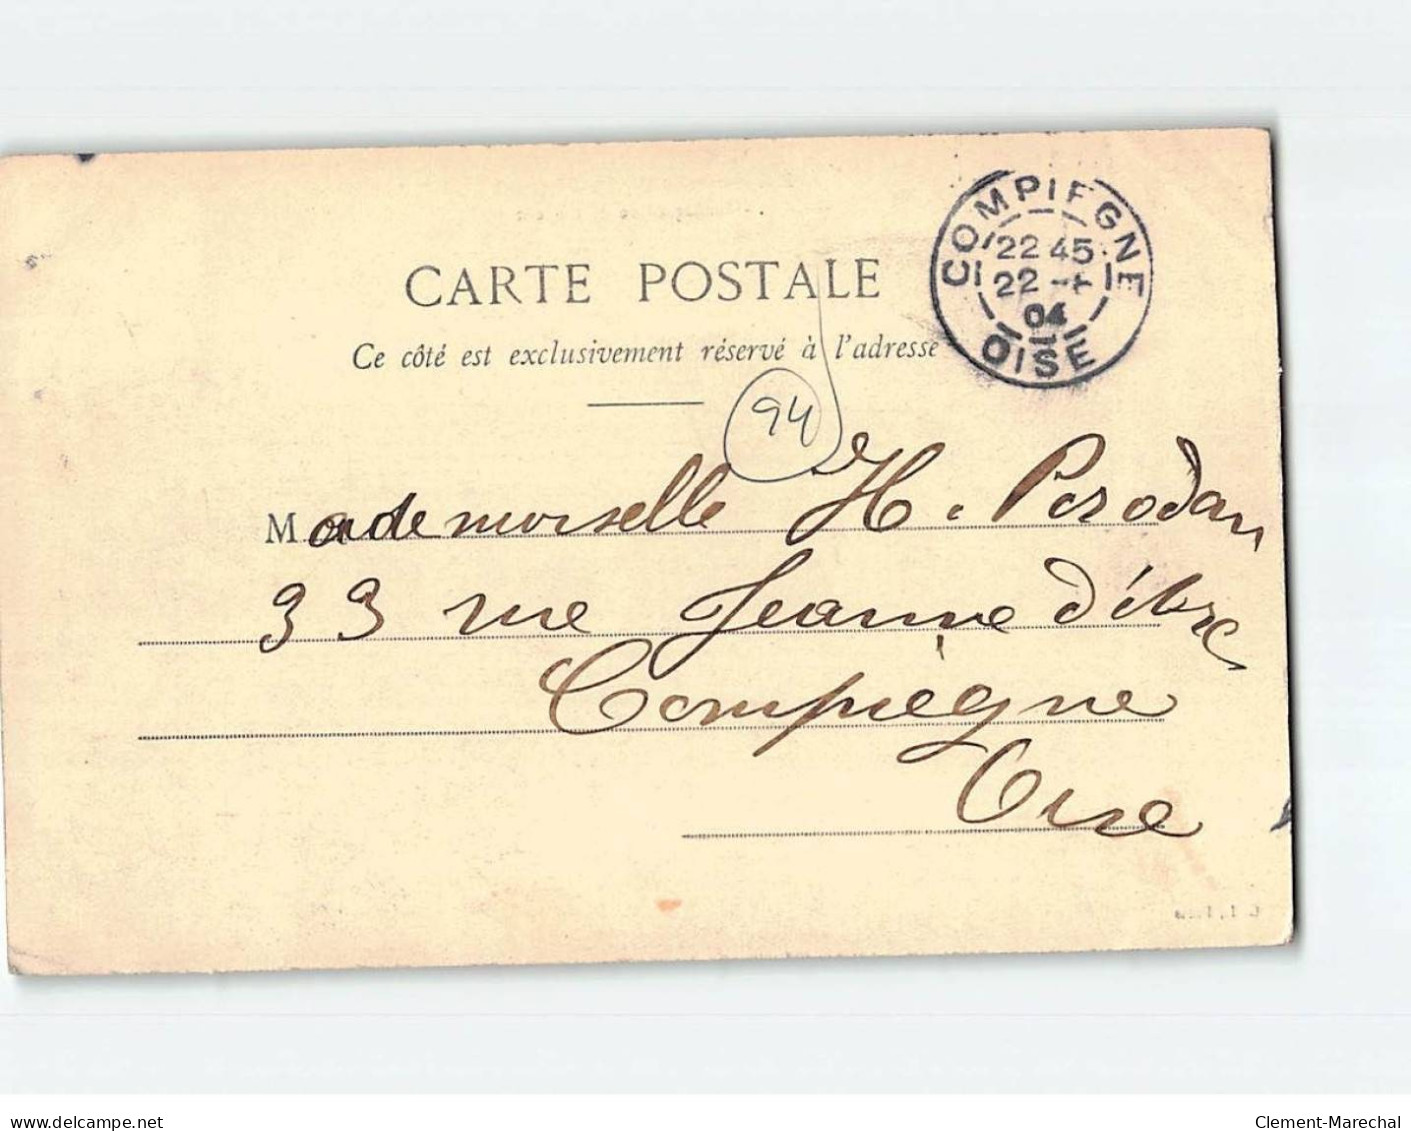 COMPIEGNE
22 45
22 -4
04
OISE
CARTE POSTALE
Ce côté est exclusivement réservé à l'adresse
94
Mademoiselle H. Porodan
33 rue Jeanne d'Arc
Compiègne
Oise
www.delcampe.net
Clement-Marechal